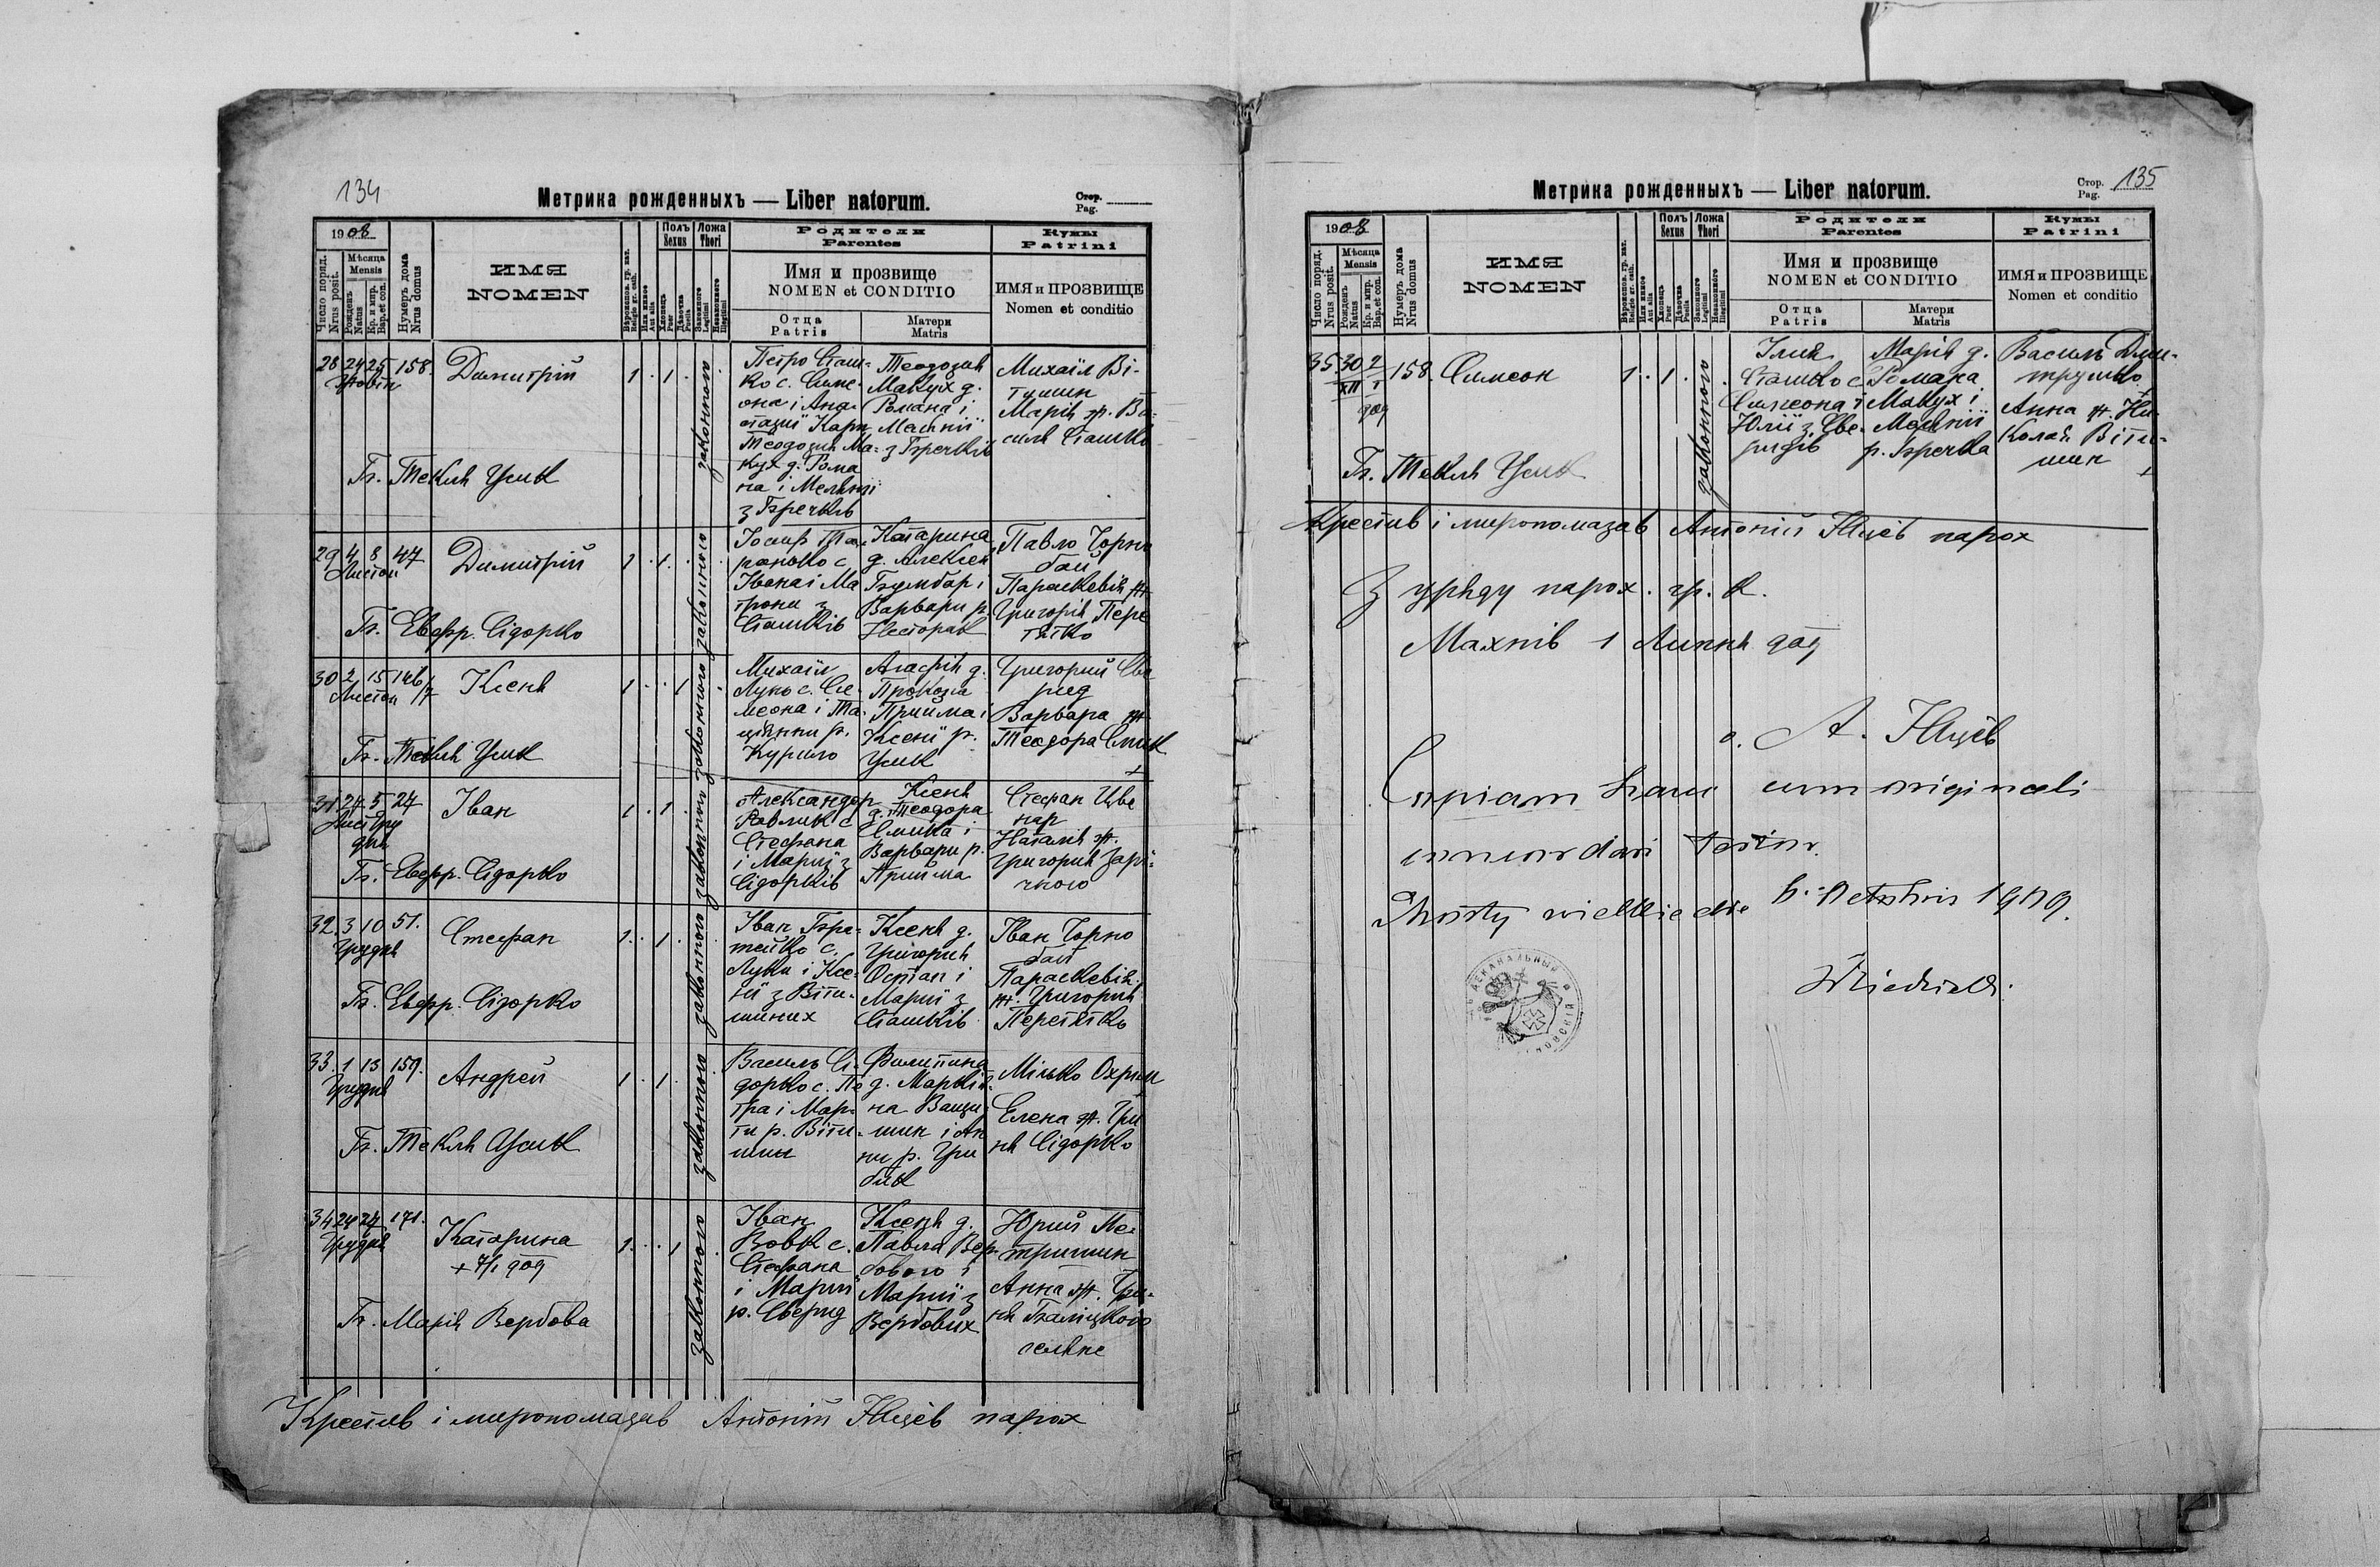 134
Метрика рожденныхъ — Liber natorum.
Стор.
Pag.
1908
Число поряд.
Nrus posit.
Мѣсяца
Mensis
Рожденъ
Natus
Кр. и мир.
Bap. et con.
Нумеръ дома
Nrus domus
ИМЯ
NOMEN
Полъ
Sexus
Хлопець
Puer
Дѣвочка
Puella
Ложа
Thori
Законного
Legitimi
Незаконного
Illegitimi
Родители
Parentes
Имя и прозвище
NOMEN et CONDITIO
Отца
Patris
Матери
Matris
Кумы
Patrini
ИМЯ и ПРОЗВИЩЕ
Nomen et conditio
28 24 25 158.
Димитрій
1 . 1 .
законного
Петро Сташ-
ко с. Симе-
она і Ана-
стазиї Карп
Теодозия Ма-
кух д. Рома
на і Мелянії
з Гречків
Теодозия
Макух д.
Романа і
Мелянії
з Гречків
Михаїл Ві-
тишин
Марія ж. Ва-
силя Сташко
Б. Текля Усик
29 4 8 47
Листоп
Димитрій
1 . 1 .
законного
Іосиф Та-
ранько с.
Івана і Ма
трони з
Сташків
Катарина
д. Алексея
Варвари р.
Павло Чорно
бай
Параскевія ж.
Григорія Пере
тятко
Б. Евфр. Сідорко
30 2 15 146/7
Листоп
Ксеня
1 . . 1
законного
Михаїл
Луко с. Си-
меона і Та-
циянни р.
Курило
Агафія д.
Прокопа
Прийма і
Ксенії р.
Усик
Григорий Све
рид
Варвара ж.
Теодора Смик
Б. Текля Усик
31 27 5 24
Лист Гру
дня
Іван
1 . 1 .
законного
Александер
Павлик с.
Стефана
і Марії з
Сідорків
Ксеня
д. Теодора
Смика і
Варвари р.
Прийма
Стефан Цве
нар
Наталя ж.
Григория Зарі-
чного
Б. Евфр. Сідорко
32. 3 10 51.
Грудня
Стефан
1 . 1 .
законного
Іван
с.
Луки і Ксе-
нії з Віти-
шиних
Ксеня д.
Григория
Остап і
Марії з
Сташків
Іван Чорно
бай
Параскевія
ж. Григория
Перетятко
Б. Евфр. Сідорко
33. 1 13 159.
Грудня
Андрей
1 . 1 .
законного
Василь Сі-
дорко с. Пе
тра і Мар-
ти р. Віти-
шин
Филипина
д. Маркія-
на Ващи-
шин і Ан
ни р. Гри
бик
Мілько Охрим
Елена ж. Гри
ня Сідорко
Б. Текля Усик
34 24 27 171.
Грудня
Катарина
+ 7/1 909
1 . . 1
законного
Іван
Вовк с.
Стефана
і Марії
р. Сверид
Ксеня д.
Павла Вер-
бового і
Марії з
Вербових
Юрий Ме-
тришин
Анна ж. Гри-
ня Галіцкого
селяне
Б. Марія Вербова
Крестив і миропомазав Антоній Яцев парох
Метрика рожденныхъ — Liber natorum.
Стор.
Pag.
135
1908
Число поряд.
Nrus posit.
Мѣсяца
Mensis
Рожденъ
Natus
Кр. и мир.
Bap. et con.
Нумеръ дома
Nrus domus
ИМЯ
NOMEN
Полъ
Sexus
Хлопець
Puer
Дѣвочка
Puella
Ложа
Thori
Законного
Legitimi
Незаконного
Illegitimi
Родители
Parentes
Имя и прозвище
NOMEN et CONDITIO
Отца
Patris
Матери
Matris
Кумы
Patrini
ИМЯ и ПРОЗВИЩЕ
Nomen et conditio
35 30 2 158.
XII I
909
Симеон
1 . 1 .
законного
Ілия
Сташко с.
Симеона і
Юлії з Све-
ридів
Марія д.
Романа
Макух і
Меланії
р. Гречка
Василь Дми-
трушко
Анна ж. Ни-
колая Віти-
шин
Б. Текля Усик
Крестив і миропомазав Антоній Яцев парох
З уряду парох. гр. к.
Махнів 1 Липня 909
о. А. Яцев
Copiam hanc cum originali
concordari testor.
Mosty wielkie die 6. Octobris 1909.